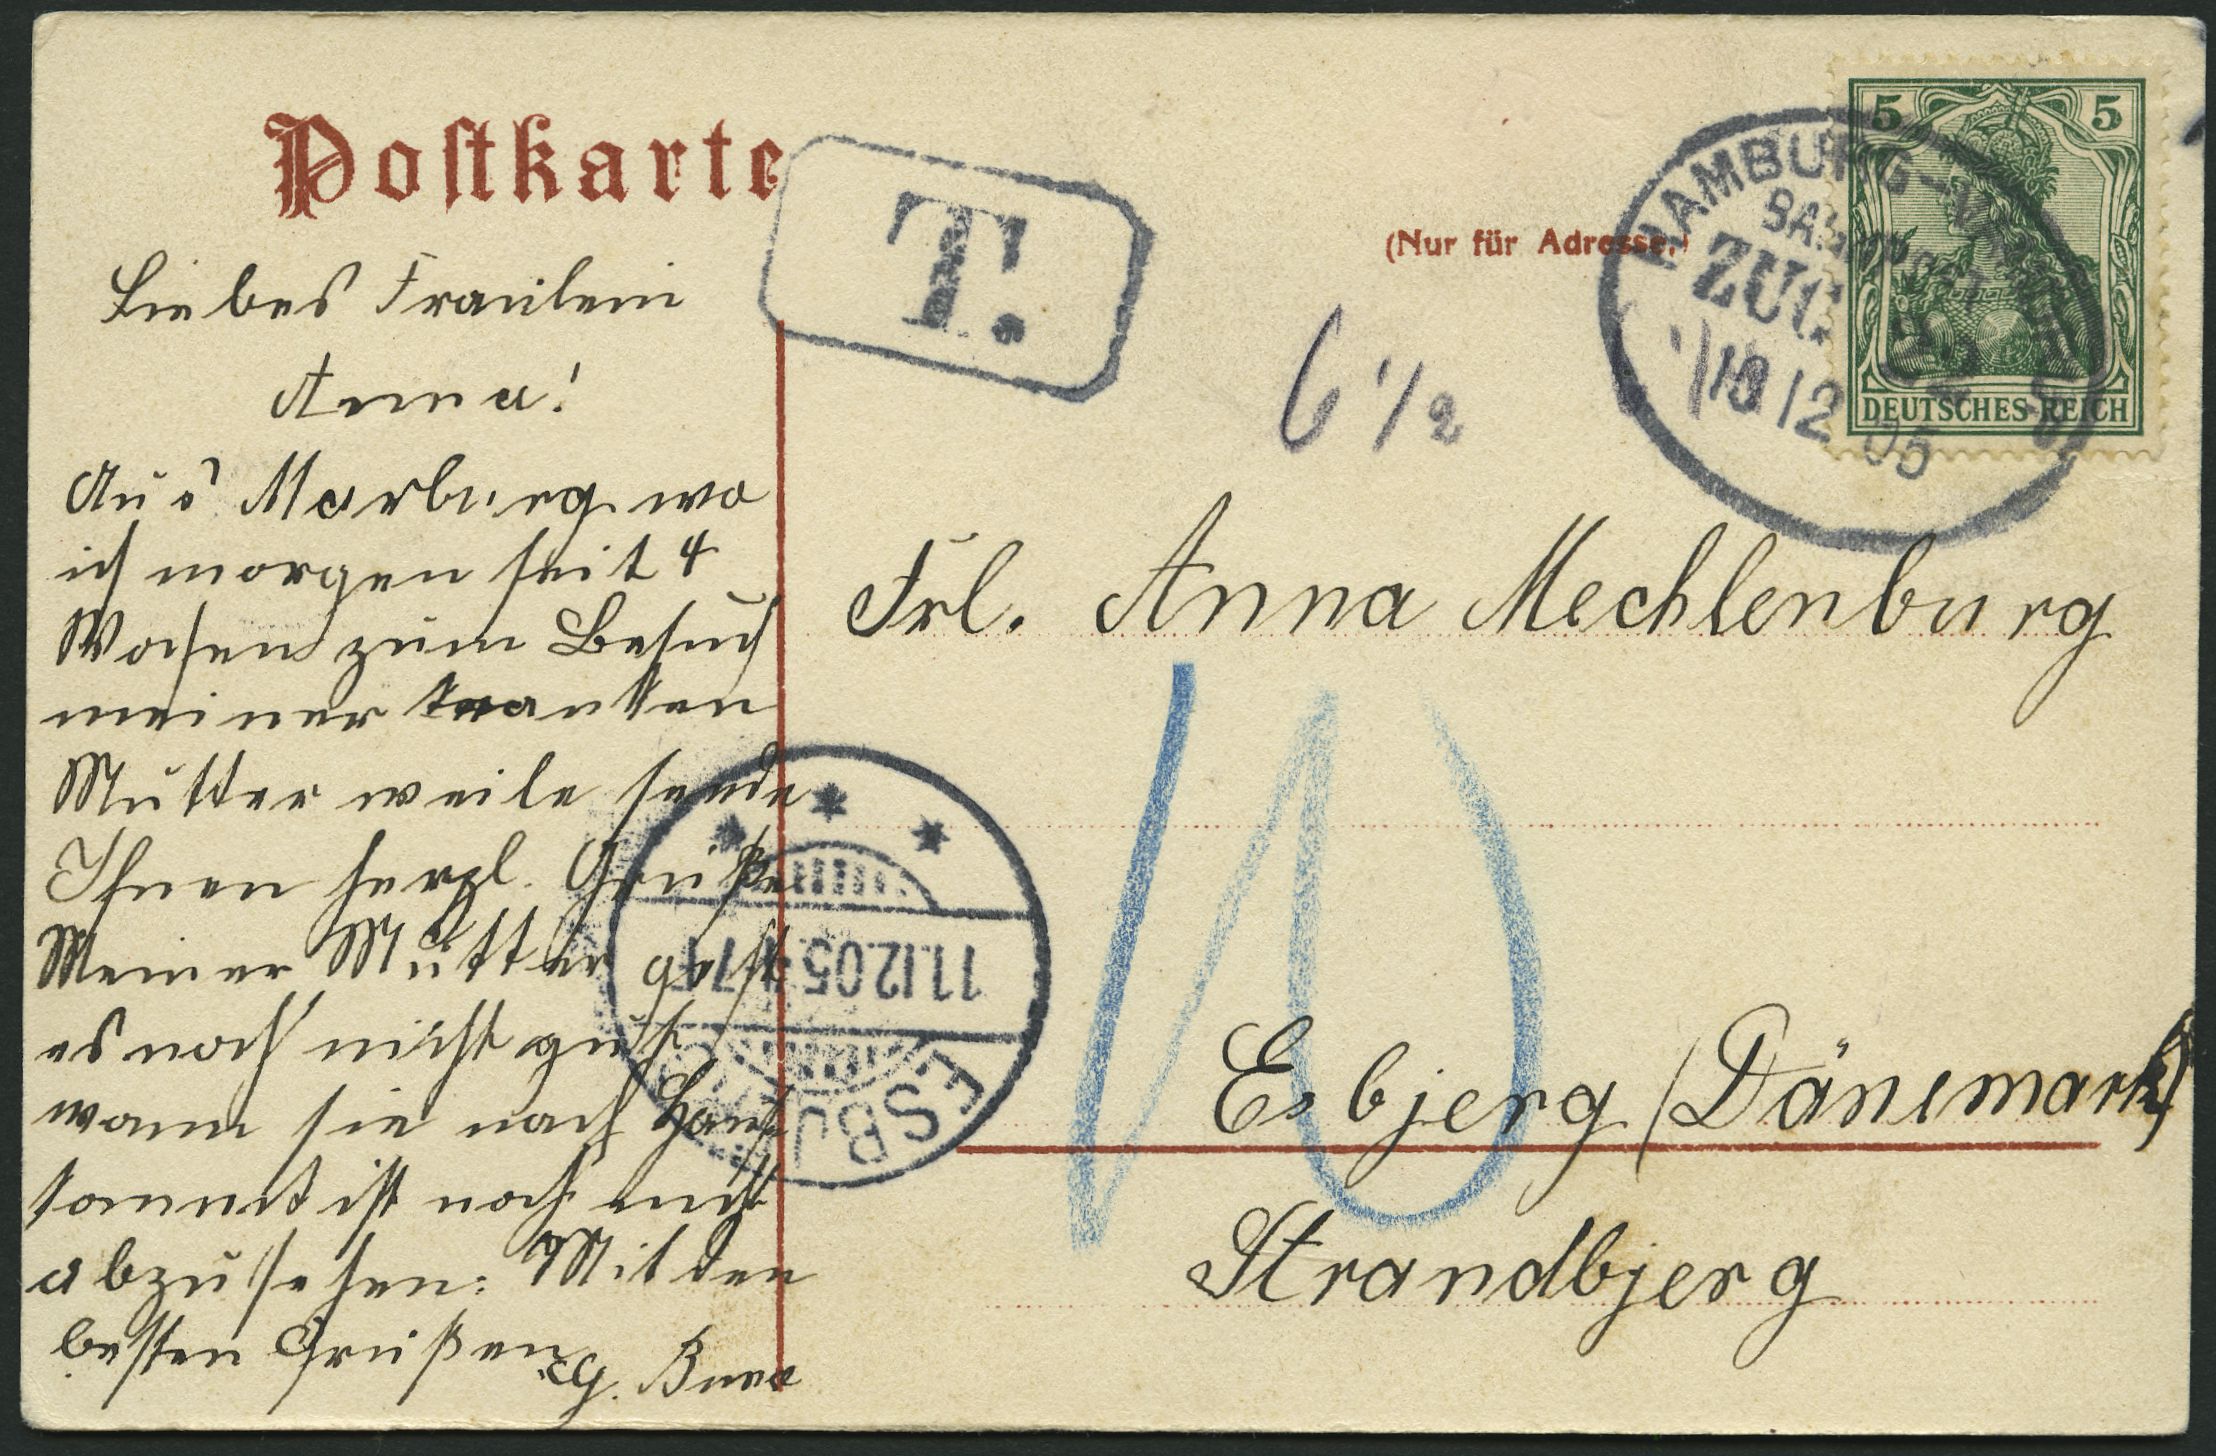 Postkarte
(Nur für Adresse.)
T.
6 1/2
5 5
DEUTSCHES REICH
HAMBURG-
BAHNPOST
ZUG
10 12 05
Liebes Fraulein
Anna!
Aus Marburg wo
ich morgen seit 4
Wochen zum Besuch
meiner kranken
Mutter weile sende
Ihnen herzl. Grüße
Meiner Mutter geht
es noch nicht gut,
wann sie nach Haus
kommt ist noch nicht
abzusehen. Mit den
besten Grüßen
Frl. Anna Mechlenburg
10
Esbjerg (Dänemark)
Strandbjerg
11.12.05
ESBJERG